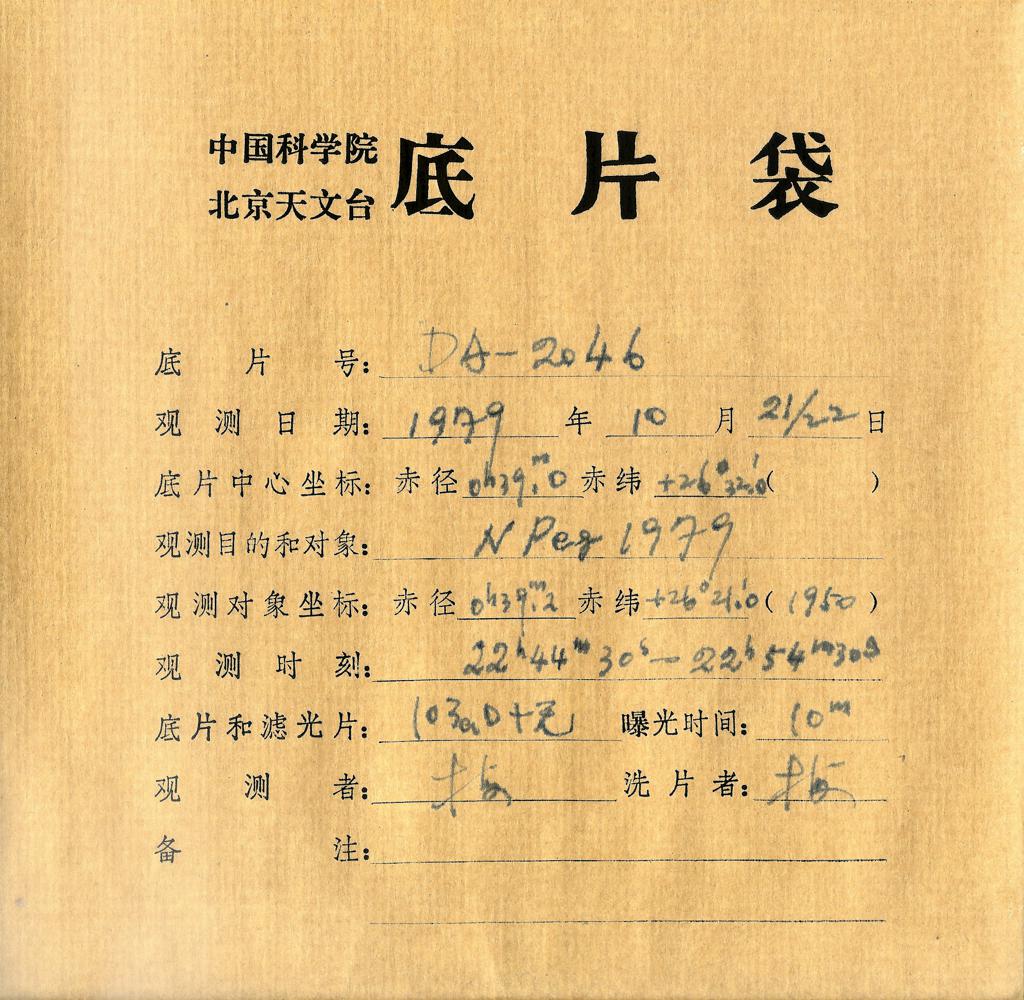 中国科学院
北京天文台 底片袋
底片号: DA-2046
观测日期: 1979 年 10 月 21/22 日
底片中心坐标: 赤径 0h39m.0 赤纬 +26°32'.0 ( )
观测目的和对象: N Peg 1979
观测对象坐标: 赤径 0h39m.2 赤纬 +26°21'.0 (1950)
观测时刻: 22h44m30s-22h54m30s
底片和滤光片: 103aO+无 曝光时间: 10m
观测者: 洗片者:
备注: